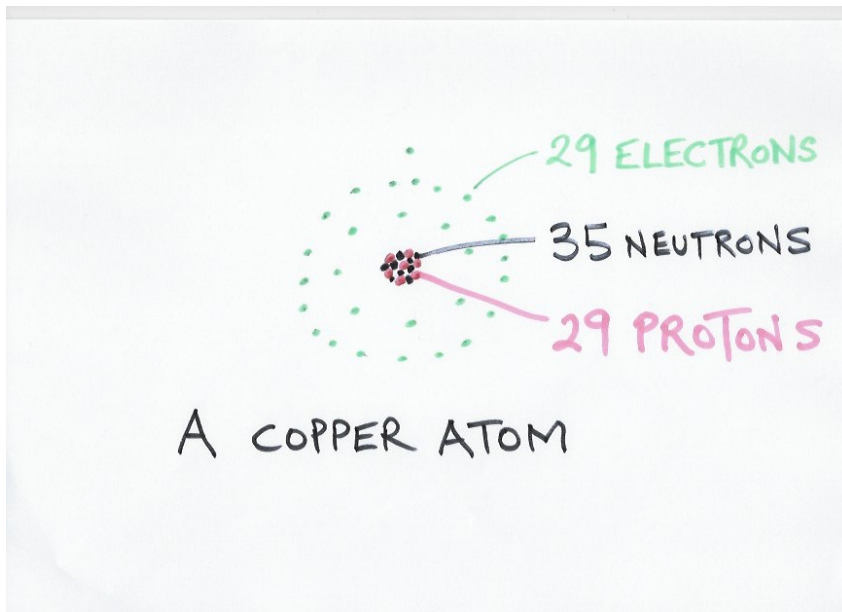 29 ELECTRONS
35 NEUTRONS
29 PROTONS
A COPPER ATOM